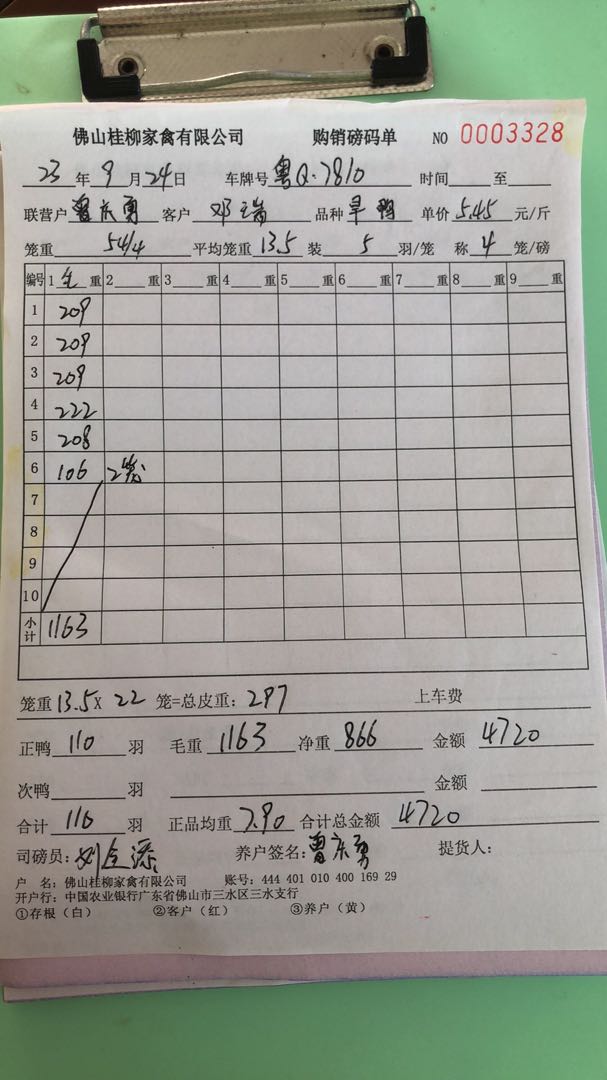 佛山桂柳家禽有限公司 购销磅码单 NO 0003328
23 年 9 月 24 日 车牌号 粤Q·7810 时间 至
联营户 曾庆勇 客户 邓瑞 品种 旱鸭 单价 5.45 元/斤
笼重 54/4 平均笼重 13.5 装 5 羽/笼 称 4 笼/磅
编号 1 毛 重 2 重 3 重 4 重 5 重 6 重 7 重 8 重 9 重
1 209
2 209
3 209
4 222
5 208
6 106 2笼
7
8
9
10
小计 1163
笼重 13.5 X 22 笼=总皮重: 297 上车费
正鸭 110 羽 毛重 1163 净重 866 金额 4720
次鸭 羽 金额
合计 110 羽 正品均重 7.90 合计总金额 4720
司磅员: 养户签名: 曾庆勇 提货人:
户 名: 佛山桂柳家禽有限公司 账号: 444 401 010 400 169 29
开户行: 中国农业银行广东省佛山市三水区三水支行
①存根（白） ②客户（红） ③养户（黄）